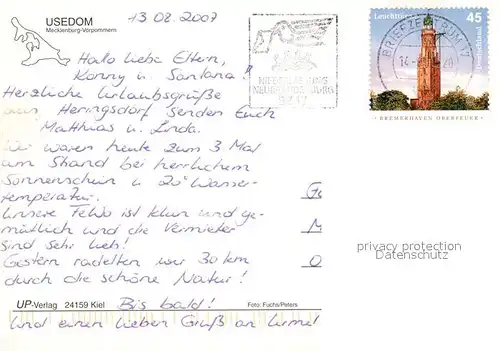 USEDOM
Mecklenburg-Vorpommern
13.08.2007
Hallo liebe Eltern,
Konny u. Santana!
Herzliche Urlaubsgrüße
aus Heringsdorf senden Euch
Matthias u. Linda.
Wir waren heute zum 3. Mal
am Strand bei herrlichem
Sonnenschein u. 20° Wasser-
temperatur.
Unsere FeWo ist klein und ge-
mütlich und die Vermieter
sind sehr lieb!
Gestern radelten wir 30 km
durch die schöne Natur!
Bis bald!
Und einen lieben Gruß an
UP-Verlag 24159 Kiel
Foto: Fuchs/Peters
NIEDERLASSUNG
Leuchttürme
45
Deutschland
BRIEFZENTRUM 17
BREMERHAVEN OBERFEUER
privacy protection
Datenschutz